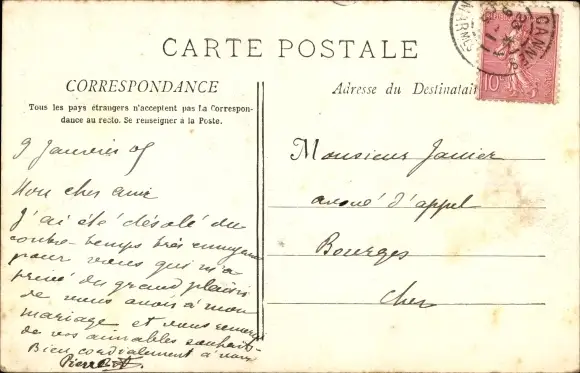 CARTE POSTALE
CORRESPONDANCE
Tous les pays étrangers n'acceptent pas la Correspon-
dance au recto. Se renseigner à la Poste.
Adresse du Destinatair
CANNES
10
9 Janvier 05
Mon cher ami
J'ai été désolé du
contre-temps très ennuyeux
pour vous qui m'a
privé du grand plaisir
de vous avoir à mon
mariage et vous remercie
de vos aimables souhaits.
Bien cordialement à vous
Pierre
Monsieur Janier
avoué d'appel
Bourges
Cher